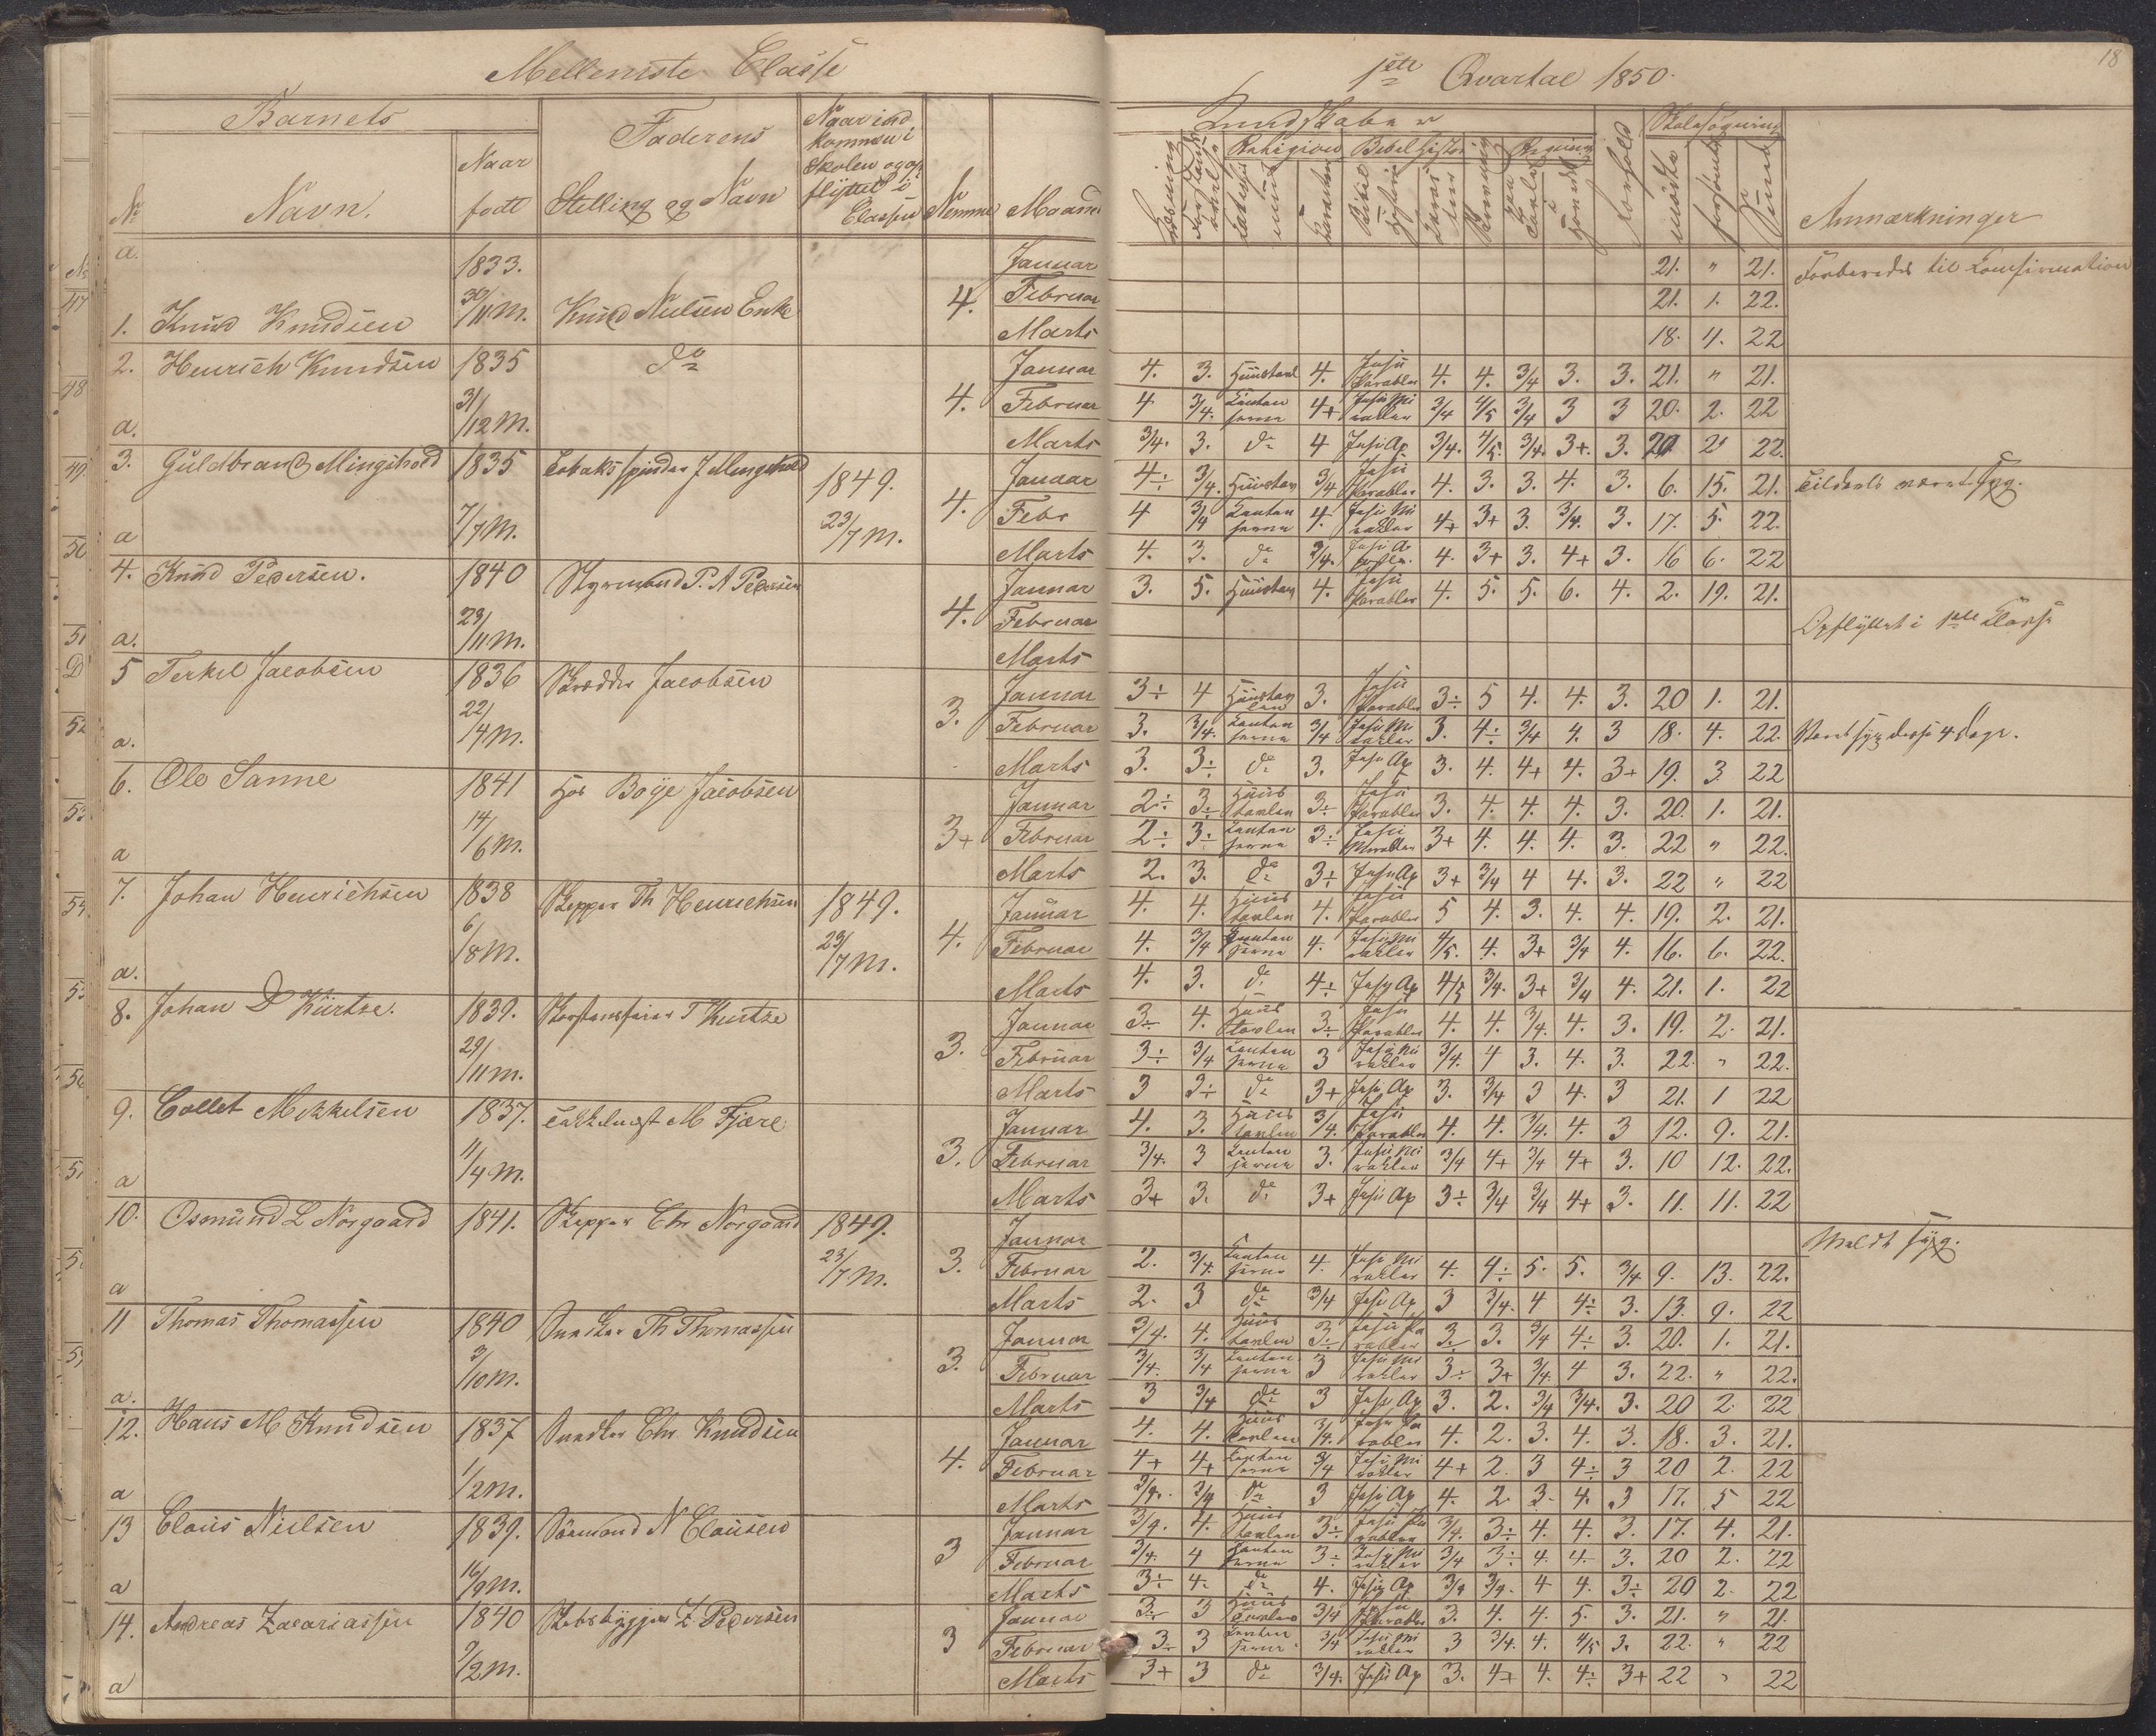 Mellemste Classe
1ste Qvartal 1850.
18
Barnets
Faderens
Naar ind
kommen i
Skolen og op
flyttet i
Classen
Kundskaber
Skolesøgning
Religion
Bibelhistorie
Regning
No
Navn.
Naar
født
Stilling og Navn
Nemme
Maaned
Læsning
Forhold
mødte
forsømte
Anmærkninger
a.
1. Knud Knudsen 1833. 30/11 M. Knud Nielsen Enke 4.
Januar 21. " 21. Forberedes til Confirmation
Februar 21. 1. 22.
Marts 18. 4. 22
2. Henrich Knudsen 1835 31/12 M. do 4.
a.
Januar 4. 3. Huustavl 4. Jesu Parabler 4. 4. 3/4 3. 3. 21. " 21.
Februar 4 3/4. 4+ Jesu Mirakler 3/4 4/5 3/4 3 3 20. 2. 22
Marts 3/4. 3. do 4 Jesu Ap 3/4. 4/5. 3/4. 3+. 3. 20 2 22.
3. Guldbrand Mingshold 1835 7/7 M. Tobaksspinder J Mingshold 1849. 23/7 M. 4.
a
Januar 4÷ 3/4. Huustav 3/4 Jesu Parabler 4. 3. 3. 4. 3. 6. 15. 21. Tildeels været syg.
Febr 4 3/4 4. Jesu Mirakler 4+ 3+ 3. 3/4. 3. 17. 5. 22.
Marts 4. 3. do 3/4. Jesu A 4. 3+ 3. 4+ 3. 16 6. 22
4. Knud Pedersen. 1840 23/11 M. Styrmand P. A Pedersen 4.
a.
Januar 3. 5. Huustav 4. Jesu Parabler 4. 5. 5. 6. 4. 2. 19. 21.
Februar Opflyttet i 1ste Classe
Marts
5 Terkel Jacobsen 1836 22/4 M. Skrædder Jacobsen 3.
a.
Januar 3÷ 4 Huustavlen 3. Jesu Parabler 3÷ 5 4. 4. 3. 20 1. 21.
Februar 3. 3/4. 3/4 Jesu Mirakler 3. 4÷ 3/4 4. 3 18. 4. 22. Været syg disse 4 Dage.
Marts 3. 3÷ do 3. Jesu Ap 3. 4. 4+ 4. 3+ 19. 3 22
6. Ole Sanne 1841 14/6 M. hos Boye Jacobsen 3+
a
Januar 2÷ 3÷ Huustavlen 3÷ Jesu Parabler 3. 4. 4. 4. 3. 20. 1. 21.
Februar 2÷ 3÷ 3÷ Jesu Mirakler 3+ 4. 4. 4. 3. 22 " 22.
Marts 2. 3. do 3÷ Jesu Ap 3+ 3/4 4 4. 3. 22 " 22
7. Johan Henrichsen 1838 6/8 M. Skipper Th Henrichsen 1849. 23/7 M. 4.
a.
Januar 4. 4. Huustavlen 4. Jesu Parabler 5 4. 3. 4. 4. 19. 2. 21.
Februar 4. 3/4 4. Jesu Mirakler 4/5. 4. 3+ 3/4 4. 16. 6. 22.
Marts 4. 3. do 4÷ Jesu Ap 4/5 3/4. 3+ 3/4 4. 21. 1. 22
8. Johan D Kürtze. 1839. 29/11 M. Skorstensfeier T Kürtze 3.
Januar 3÷ 4. Huustavlen 3÷ Jesu Parabler 4. 4. 3/4. 4. 3. 19. 2. 21.
Februar 3÷ 3/4 3 Jesu Mirakler 3/4. 4 3. 4. 3. 22. " 22.
Marts 3 3÷ do 3+ Jesu Ap 3. 3/4 3 4. 3 21. 1 22
9. Collet Mikkelsen 1837. 11/4 M. M Fjære 3.
a
Januar 4. 3. Huustavlen 3/4. Jesu Parabler 4. 4. 3/4. 4. 3 12. 9. 21.
Februar 3/4. 3 3. Jesu Mirakler 3/4 4+ 3/4 4+ 3. 10 12. 22.
Marts 3+ 3. do 3+ Jesu Ap 3÷ 3/4 3/4 4+ 3. 11. 11. 22
10. Osmund L Norgaard 1841. Skipper Chr Norgaard 1849. 23/7 M. 3.
a
Januar Meldt syg.
Februar 2. 3/4. 4. Jesu Mirakler 4. 4÷ 5. 5. 3/4 9. 13. 22.
Marts 2. 3 do 3/4 Jesu Ap 3 3/4. 4 4÷ 3. 13. 9. 22
11 Thomas Thomassen 1840 3/10 M. Snedker Th Thomassen 3.
a.
Januar 3/4. 4. Huustavlen 3÷ Jesu Parabler 3÷ 3. 3/4 4÷ 3. 20. 1. 21.
Februar 3/4. 3/4 3 Jesu Mirakler 3÷ 3+ 3/4. 4 3. 22. " 22.
Marts 3 3/4 do 3 Jesu Ap 3. 2. 3/4 3/4. 3. 20 2. 22
12. Hans M Knudsen 1837 1/2 M. Snedker Chr Knudsen 4.
a
Januar 4. 4. Huustavlen 3/4. Jesu Parabler 4. 2. 3. 4. 3. 18. 3. 21.
Februar 4+ 4+ 3/4 Jesu Mirakler 4+ 2. 3 4÷ 3 20 2. 22
Marts 3/4. 3/4 do 3 Jesu Ap 4. 2. 3. 4. 3 17. 5 22
13 Claus Nielsen 1839. 16/9 M. Sømand N Clausen 3
a
Januar 3/4. 4. Huustavlen 3÷ Jesu Parabler 3/4. 3÷ 4. 4. 3. 17. 4. 21.
Februar 3/4. 4 3÷ Jesu Mirakler 3/4 3÷ 4. 4. 3. 20 2. 22
Marts 3÷ 4. do 4. Jesu Ap 3/4 3/4. 4 4. 3÷ 20 2. 22
14. Andreas Zacariassen 1840 9/2 M. Skibsbygger Z. Pedersen 3
a
Januar 3÷ 3 Huustavlen 3/4 Jesu Parabler 3. 4. 4. 5. 3. 21. " 21.
Februar 3÷ 3 3/4 Jesu Mirakler 3 3/4. 4. 4/5 3. 22. " 22
Marts 3+ 3 do 3/4. Jesu Ap 3. 4+ 4. 4÷ 3+ 22 " 22